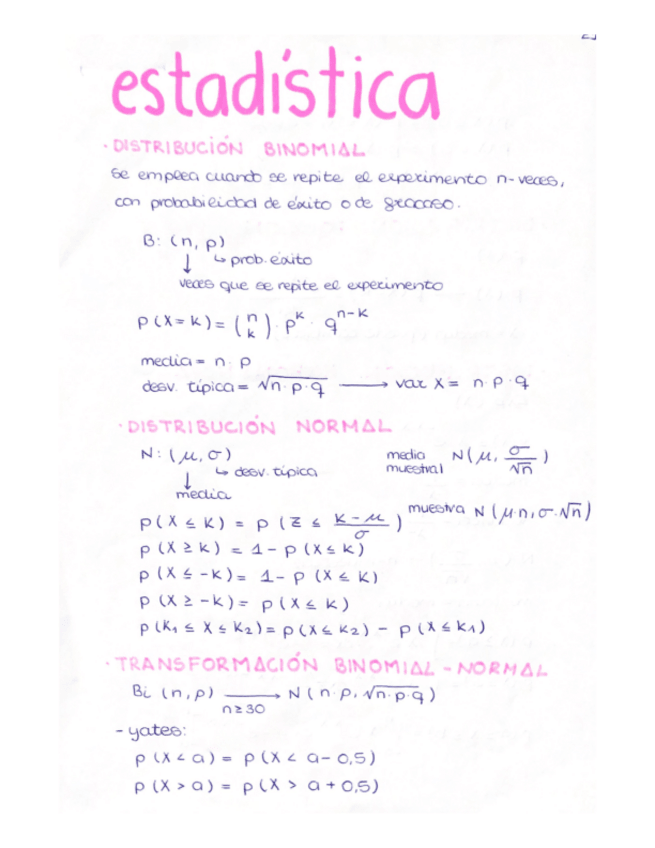 estadística
· DISTRIBUCIÓN BINOMIAL
Se emplea cuando se repite el experimento n-veces,
con probabilidad de éxito o de fracaso.
B: (n, p)
↳ prob. éxito
↓
veces que se repite el experimento
p (X = k) = (n k) · p^k · q^(n-k)
media = n · p
desv. típica = √n·p·q ⟶ var X = n · p · q
· DISTRIBUCIÓN NORMAL
N: (μ, σ)
↳ desv. típica
↓
media
media muestral N(μ, σ/√n)
muestra N (μ·n, σ·√n)
p (X ≤ k) = p (Z ≤ (k - μ)/σ)
p (X ≥ k) = 1 - p (X ≤ k)
p (X ≤ -k) = 1 - p (X ≤ k)
p (X ≥ -k) = p (X ≤ k)
p (k₁ ≤ X ≤ k₂) = p (X ≤ k₂) - p (X ≤ k₁)
· TRANSFORMACIÓN BINOMIAL - NORMAL
Bi (n, p) ⟶ N (n·p, √n·p·q)
n ≥ 30
- yates:
p (X < a) = p (X < a - 0,5)
p (X > a) = p (X > a + 0,5)